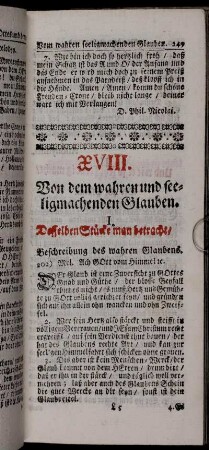 Vom wahren seeligmachenden Glauben. 249
7. Wie bin ich doch so hertzlich froh / daß
mein Schatz ist das A und O / der Anfang und
das Ende er wird mich doch zu seinem Preiß
auffnehmen in das Paradeiß / deß klopff ich in
die Hände. Amen / Amen / komm du schöne
Freuden / Crone / bleib nicht lange / deiner
wart ich mit Verlangen!
D. Phil. Nicolai.
XVIII.
Von dem wahren und see-
ligmachenden Glauben.
I.
Desselben Stücke man betrachte/
Beschreibung des wahren Glaubens.
202) Mel. Ach Gott vom Himmel ꝛc.
Der Glaub ist eine Zuversicht zu Gottes
Gnad und Güthe / der bloße Beyfall
thut es nicht / es muß Hertz und Gemüthe
zu Gott
sich auf ihn allein ohn wancken und ohn Zweiffel.
2. Wer sein Hertz also stärckt und steifft in
völligem Vertrauen / und JEsum Christum recht
ergreifft / auf sein Verdienst thut bauen / der
hat des Glaubens rechte Art / und kan zur
seeligen Himmelfahrt sich schicken ohne grauen.
3. Das aber ist kein Menschen / Werck / der
Glaub kommt von dem HErren / drum bitt /
daß er ihn in dir stärck / und möglich woll ver-
mehren / laß aber auch des Glaubens Schein
die gute Werck an dir seyn / sonst ist dein
Glaub